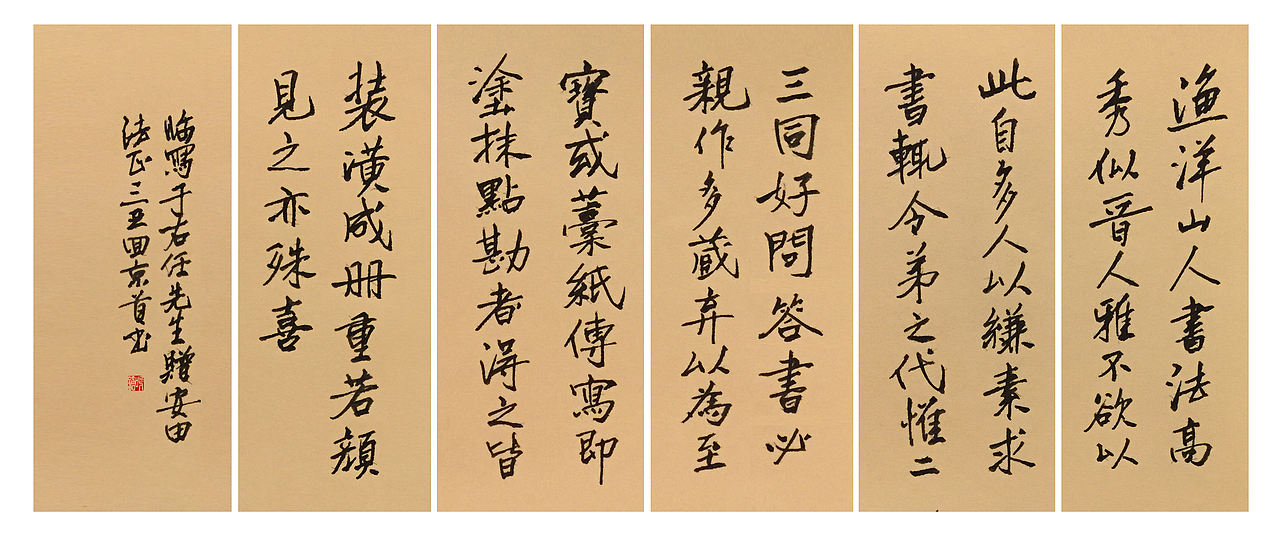 渔洋山人書法高
秀似晉人雅不欲以
此自多人以縑素求
書輒令弟之代惟二
三同好問答書必
親作多藏弃以為至
寶或藁紙傳寫即
塗抹點勘者得之皆
装潢成册重若顏
見之亦殊喜
臨寫于右任先生贈安田
法正三丑回京首书